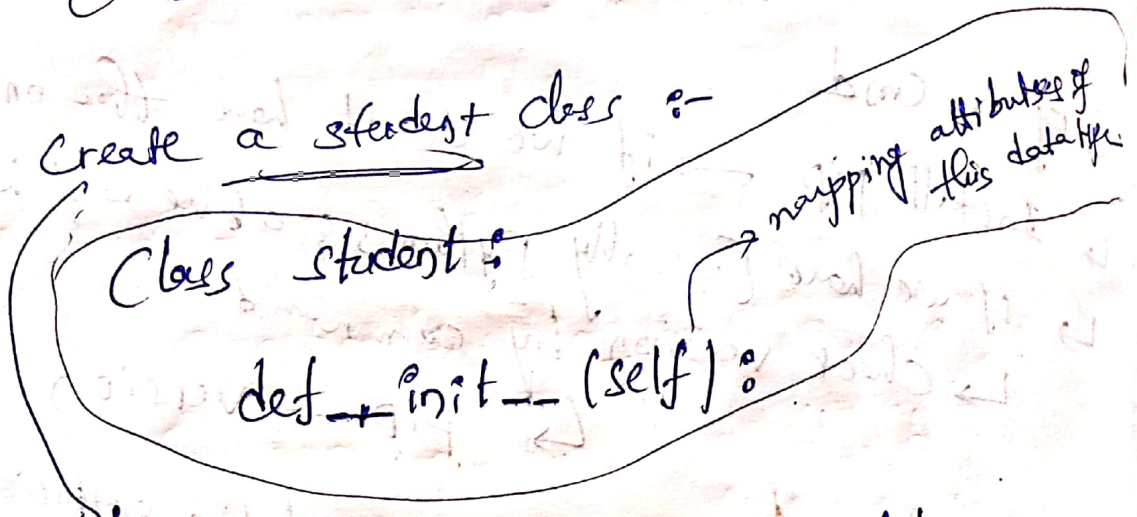 Create a student class :-
Class student :
def __init__ (self) :
mapping attributes of
this data type.